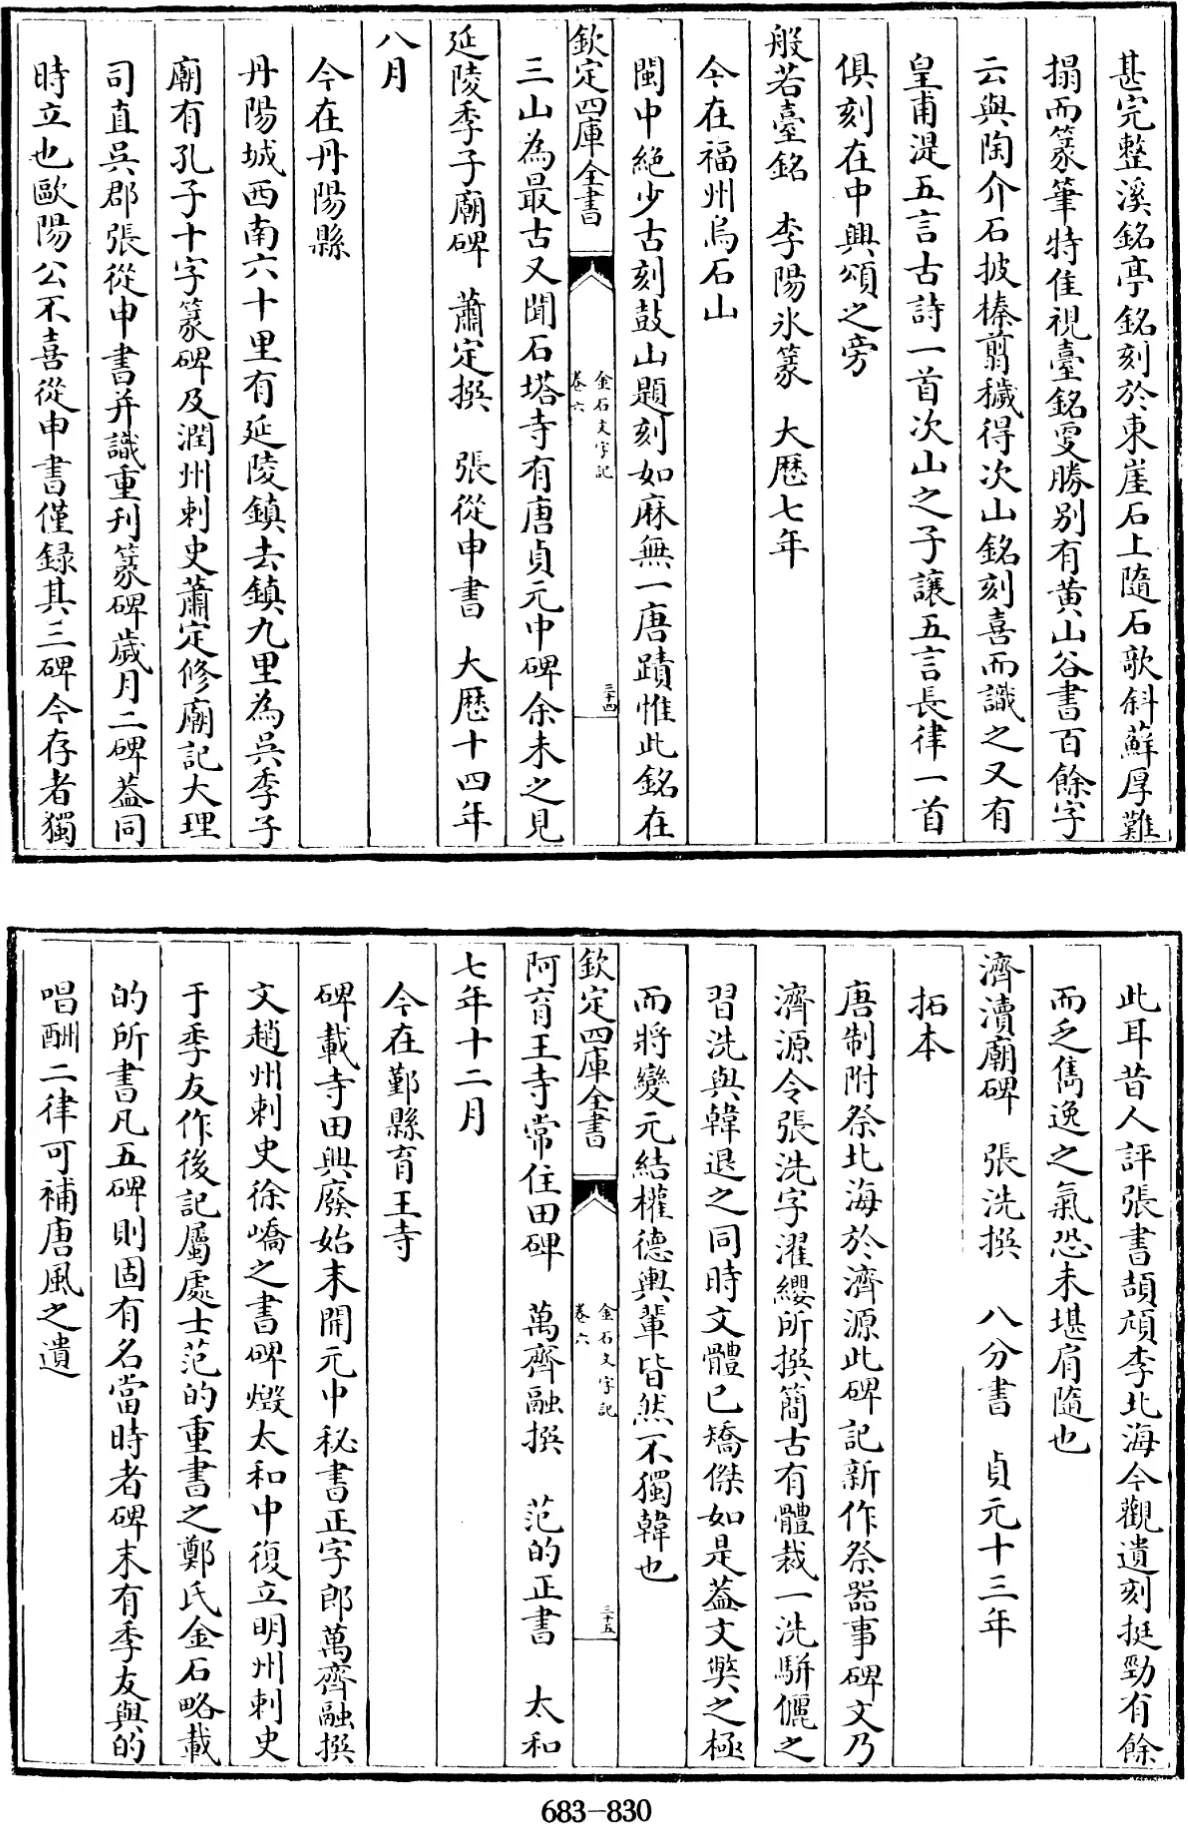 甚完整溪銘亭銘刻於東崖石上隨石歌斜蘚厚難
搨而篆筆特佳視臺銘㪅勝别有黄山谷書百餘字
云與陶介石披榛翦穢得次山銘刻喜而識之又有
皇甫湜五言古詩一首次山之子讓五言長律一首
俱刻在中興頌之旁
般若臺銘　李陽冰篆　大厯七年
今在福州烏石山
閩中絶少古刻鼓山題刻如麻無一唐蹟惟此銘在
欽定四庫全書
金石文字記
卷六
三十四
三山為最古又聞石塔寺有唐貞元中碑余未之見
延陵季子廟碑　蕭定撰　張從申書　大厯十四年
八月
今在丹陽縣
丹陽城西南六十里有延陵鎮去鎮九里為吳季子
廟有孔子十字篆碑及潤州刺史蕭定修廟記大理
司直吳郡張從申書并識重刊篆碑歲月二碑葢同
時立也歐陽公不喜從申書僅録其三碑今存者獨
此耳昔人評張書頡頏李北海今觀遺刻挺勁有餘
而乏雋逸之氣恐未堪肩隨也
濟瀆廟碑　張洗撰　八分書　貞元十三年
拓本
唐制附祭北海於濟源此碑記新作祭器事碑文乃
濟源令張洗字濯纓所撰簡古有體裁一洗駢儷之
習洗與韓退之同時文體已矯傑如是葢文獘之極
而將變元結權德輿輩皆然不獨韓也
欽定四庫全書
金石文字記
卷六
三十五
阿育王寺常住田碑　萬齊融撰　范的正書　太和
七年十二月
今在鄞縣育王寺
碑載寺田興廢始末開元中秘書正字郎萬齊融撰
文趙州刺史徐嶠之書碑燬太和中復立明州刺史
于季友作後記屬處士范的重書之鄭氏金石略載
的所書凡五碑則固有名當時者碑末有季友與的
唱酬二律可補唐風之遺
683-830